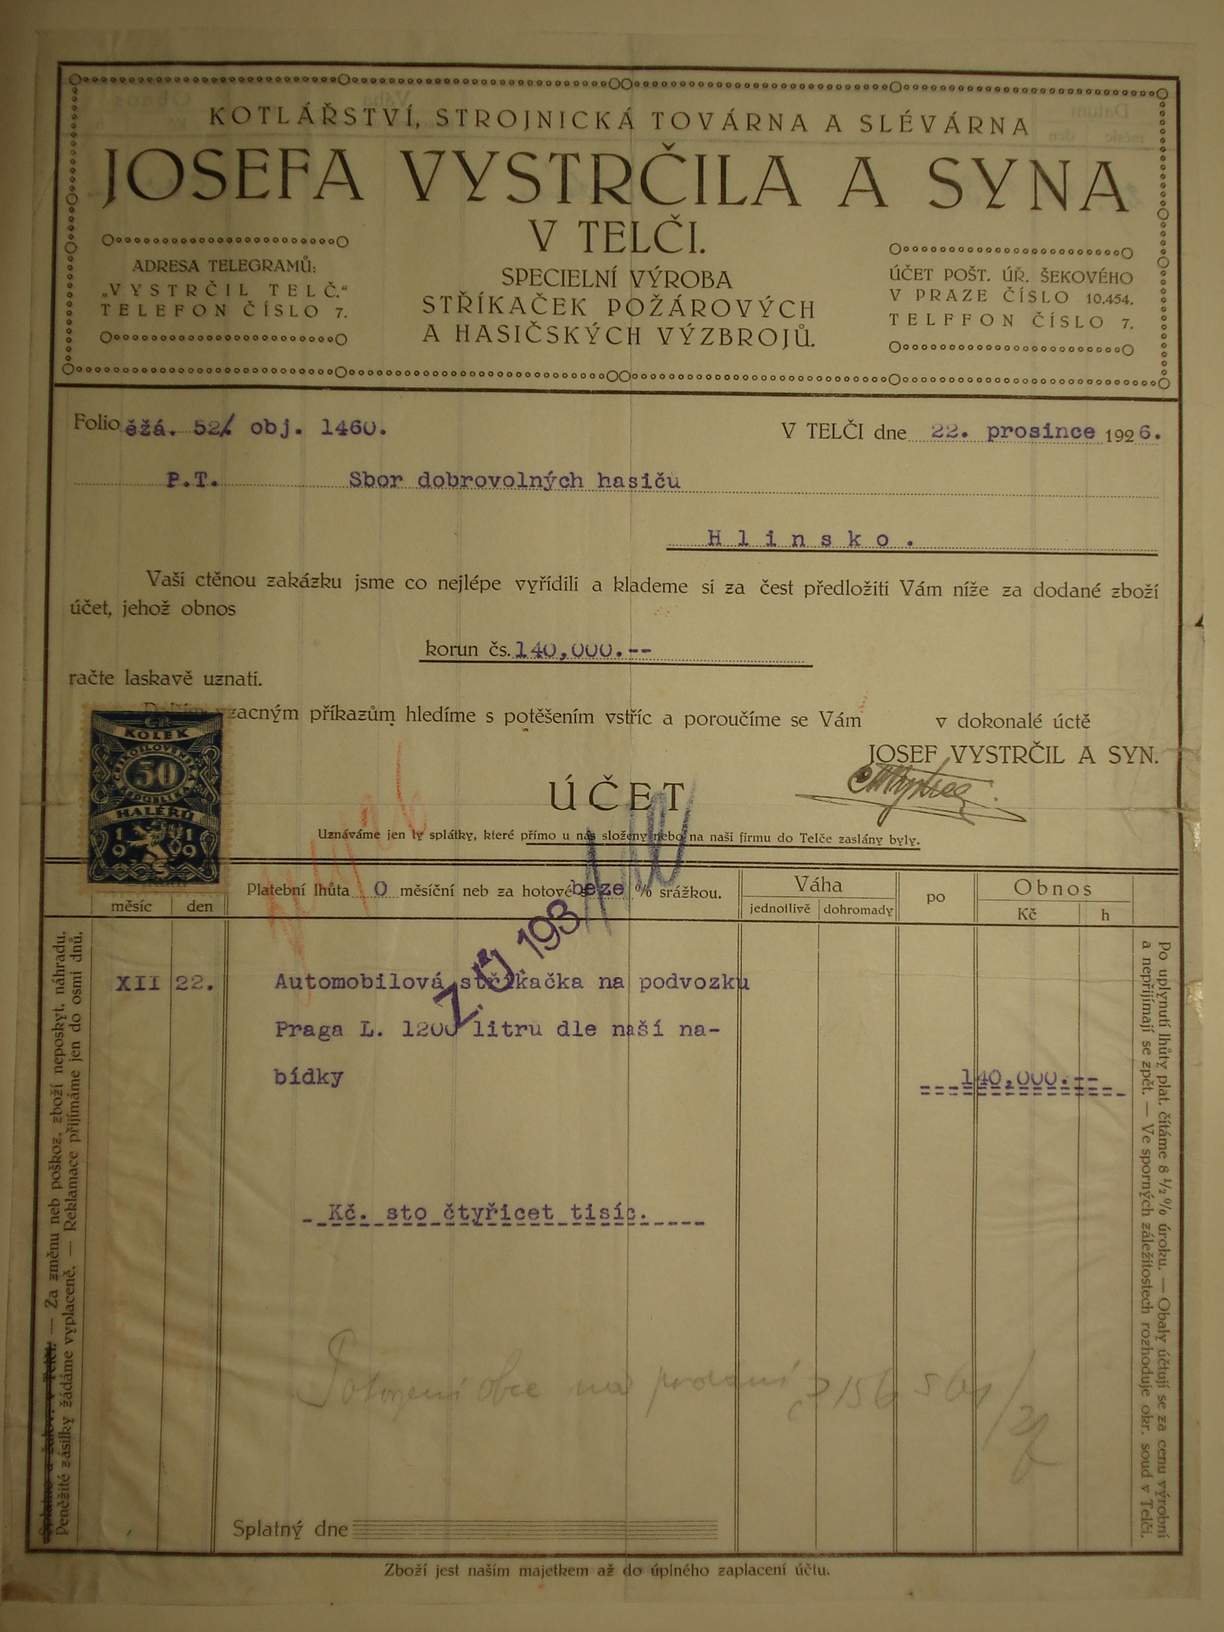 KOTLÁŘSTVÍ, STROJNICKÁ TOVÁRNA A SLÉVÁRNA
JOSEFA VYSTRČILA A SYNA
V TELČI.
SPECIELNÍ VÝROBA
STŘÍKAČEK POŽÁROVÝCH
A HASIČSKÝCH VÝZBROJŮ.
ADRESA TELEGRAMŮ:
„VYSTRČIL TELČ."
TELEFON ČÍSLO 7.
ÚČET POŠT. ÚŘ. ŠEKOVÉHO
V PRAZE ČÍSLO 10.454.
TELFFON ČÍSLO 7.
Folio ěžá. 52/ obj. 1460.
V TELČI dne 22. prosince 1926.
P.T. Sbor dobrovolných hasičů
Hlinsko.
Vaši ctěnou zakázku jsme co nejlépe vyřídili a klademe si za čest předložiti Vám níže za dodané zboží
účet, jehož obnos
korun čs. 140,000.--
račte laskavě uznati.
vzacným příkazům hledíme s potěšením vstříc a poroučíme se Vám v dokonalé úctě
JOSEF VYSTRČIL A SYN.
KOLEK
ČESKOSLOVENSKÁ
50
REPUBLIKA
HALÉŘŮ
1919
ÚČET
Uznáváme jen ty splátky, které přímo u nás složeny nebo na naši firmu do Telče zaslány byly.
měsíc den
Platební lhůta 0 měsíční neb za hotové beze % srážkou.
Váha
jednotlivě dohromady
po
Obnos
Kč h
Z. Ú 193
XII 22. Automobilová stříkačka na podvozku
Praga L. 1200 litru dle naší na-
bídky 140,000.--
Kč. sto čtyřicet tisíc.
obce na
Splatný dne
Splatno a žalov. v Telči. — Za změnu neb poškoz. zboží neposkyt. náhradu.
Peněžité zásilky žádáme vyplaceně. — Reklamace přijímáme jen do osmi dnů.
Po uplynutí lhůty plat. čítáme 8 ½% úroku. — Obaly účtují se za cenu výrobní
a nepřijímají se zpět. — Ve sporných záležitostech rozhoduje okr. soud v Telči.
Zboží jest naším majetkem až do úplného zaplacení účtu.